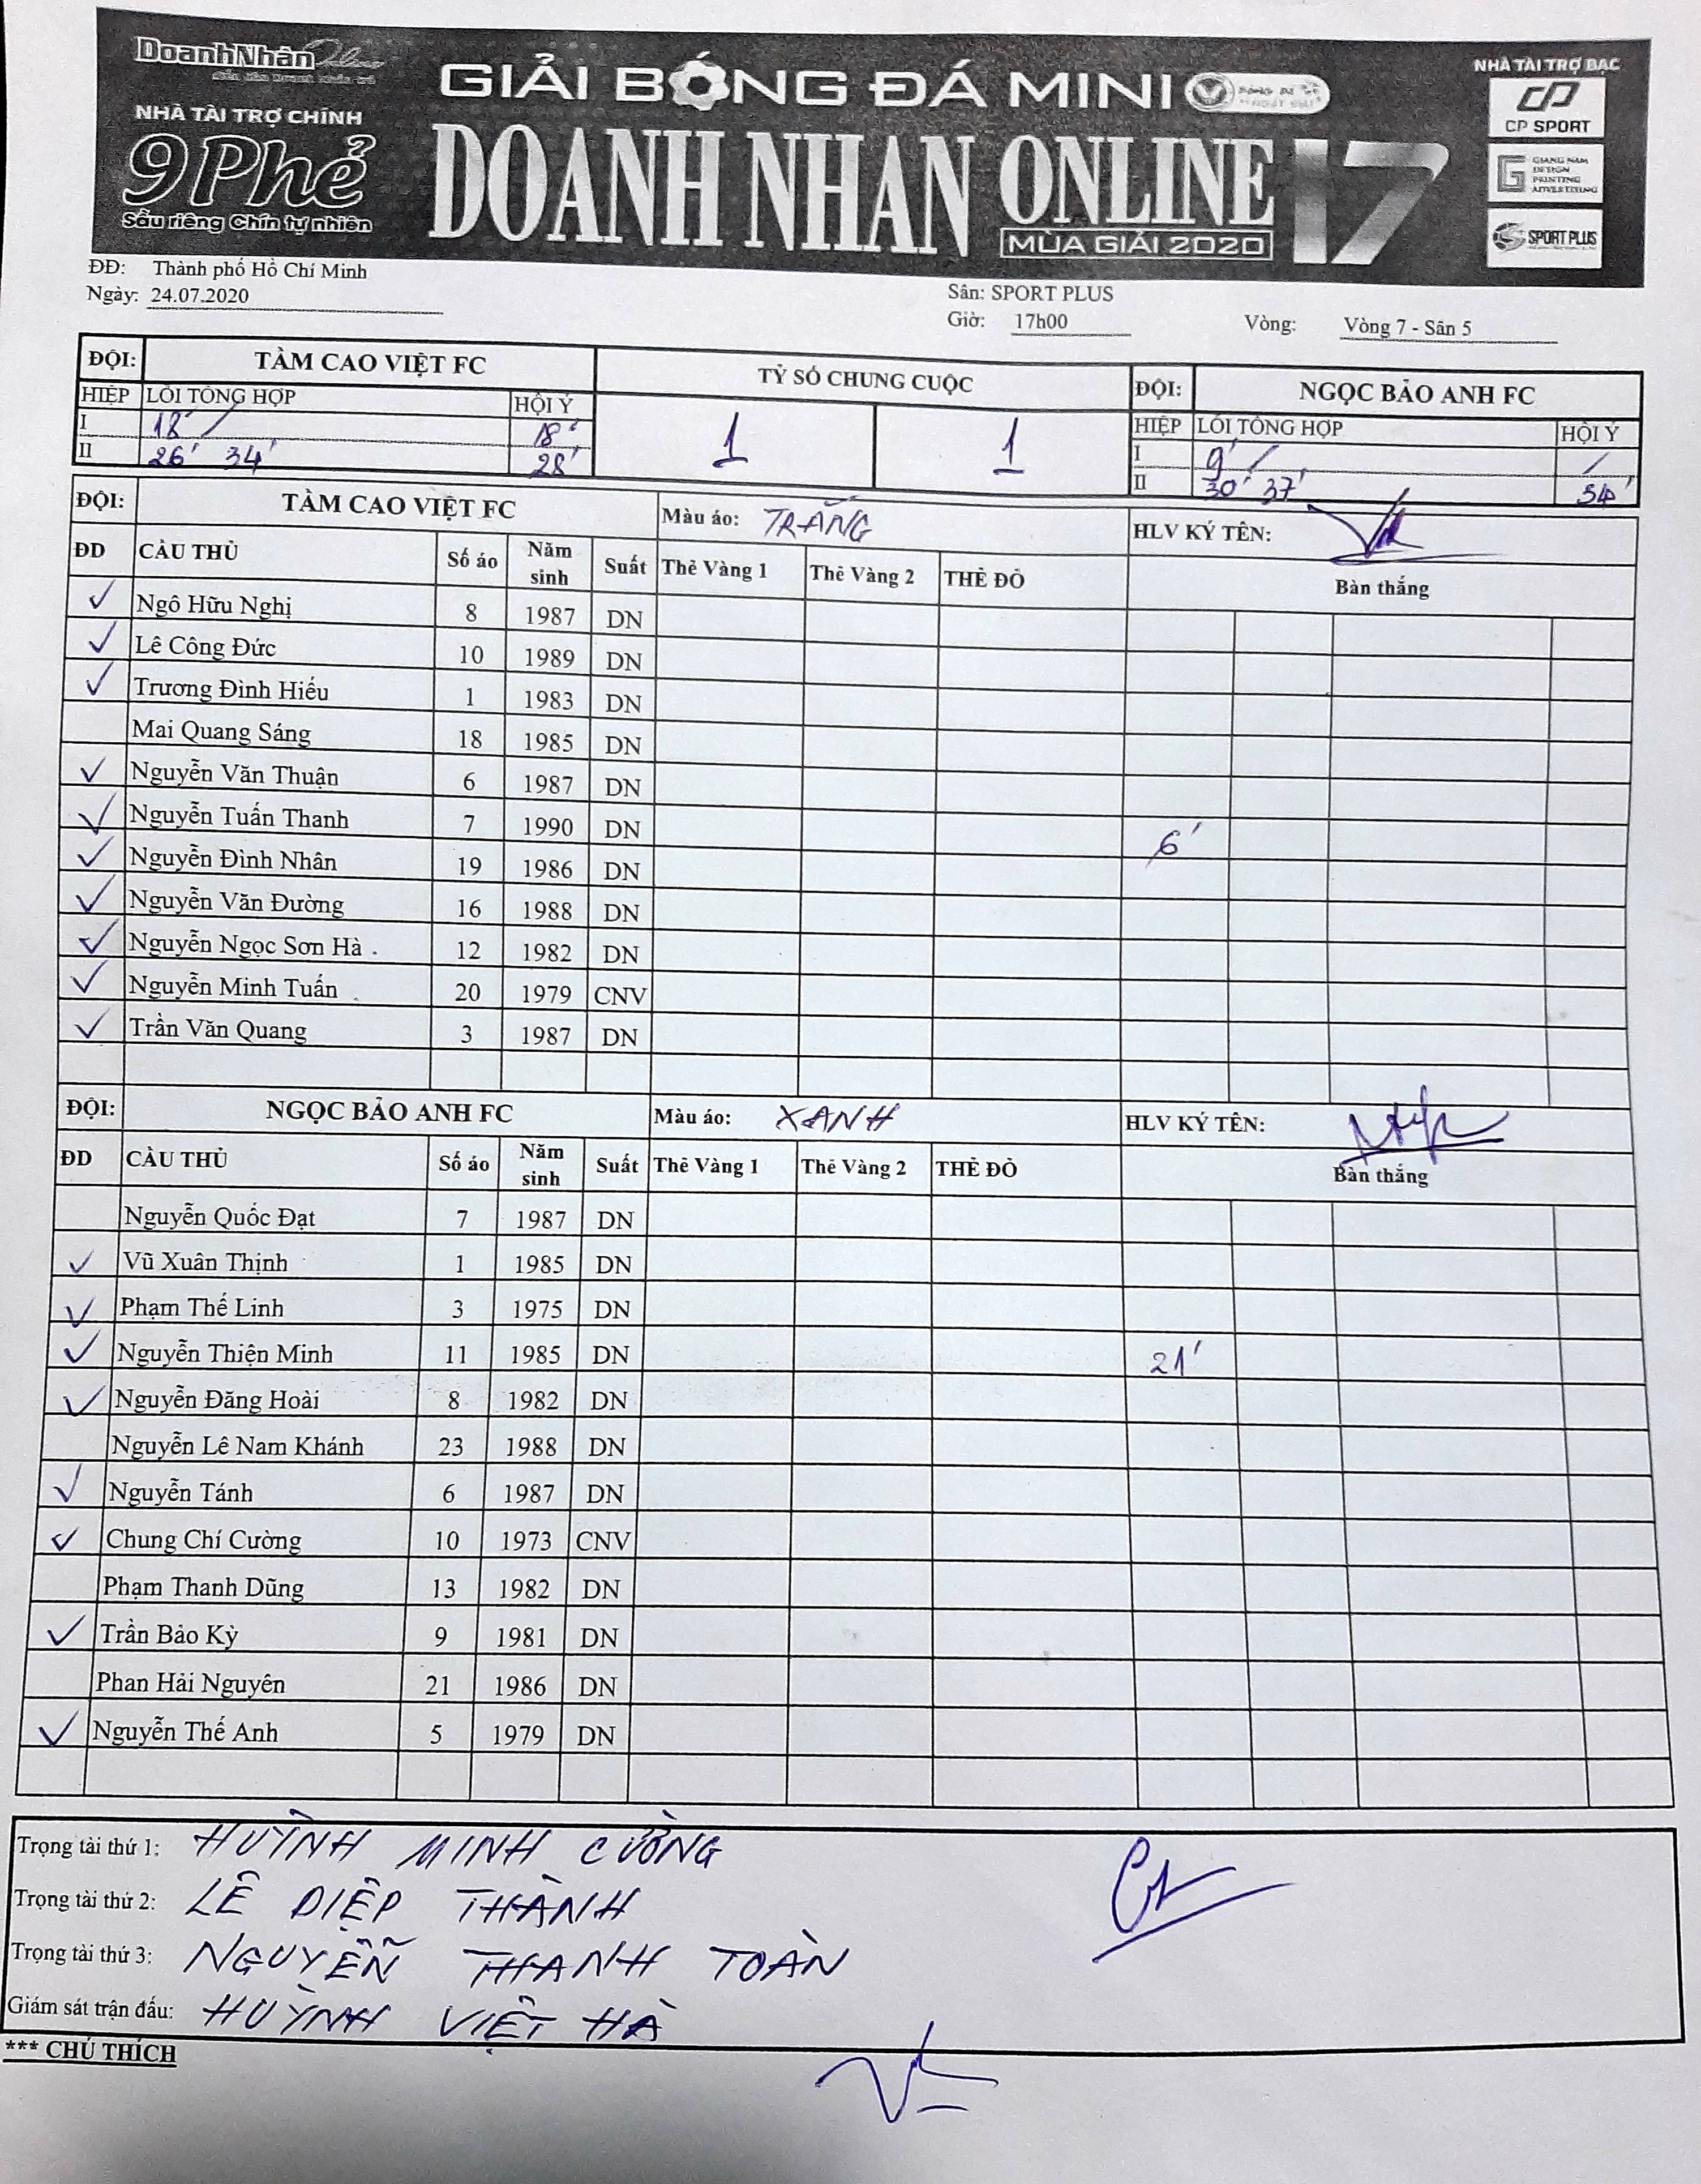 DoanhNhân Online
NHÀ TÀI TRỢ CHÍNH
9 Phẻ
Sầu riêng Chín tự nhiên
GIẢI BÓNG ĐÁ MINI
DOANH NHÂN ONLINE 17
MÙA GIẢI 2020
NHÀ TÀI TRỢ BẠC
CP SPORT
GIANG NAM
DESIGN
PRINTING
ADVERTISING
SPORT PLUS
ĐĐ: Thành phố Hồ Chí Minh
Ngày: 24.07.2020
Sân: SPORT PLUS
Giờ: 17h00 Vòng: Vòng 7 - Sân 5
ĐỘI: TẦM CAO VIỆT FC TỶ SỐ CHUNG CUỘC ĐỘI: NGỌC BẢO ANH FC
HIỆP LỖI TỔNG HỢP HỘI Ý 1 1 HIỆP LỖI TỔNG HỢP HỘI Ý
I 18' / 18' I 9' / /
II 26' 34' 28' II 30' 37' 34'
ĐỘI: TẦM CAO VIỆT FC Màu áo: TRẮNG HLV KÝ TÊN:
ĐD CẦU THỦ Số áo Năm sinh Suất Thẻ Vàng 1 Thẻ Vàng 2 THẺ ĐỎ Bàn thắng
✓ Ngô Hữu Nghị 8 1987 DN
✓ Lê Công Đức 10 1989 DN
✓ Trương Đình Hiếu 1 1983 DN
Mai Quang Sáng 18 1985 DN
✓ Nguyễn Văn Thuận 6 1987 DN
✓ Nguyễn Tuấn Thanh 7 1990 DN 6'
✓ Nguyễn Đình Nhân 19 1986 DN
✓ Nguyễn Văn Đường 16 1988 DN
✓ Nguyễn Ngọc Sơn Hà . 12 1982 DN
✓ Nguyễn Minh Tuấn 20 1979 CNV
✓ Trần Văn Quang 3 1987 DN
ĐỘI: NGỌC BẢO ANH FC Màu áo: XANH HLV KÝ TÊN:
ĐD CẦU THỦ Số áo Năm sinh Suất Thẻ Vàng 1 Thẻ Vàng 2 THẺ ĐỎ Bàn thắng
Nguyễn Quốc Đạt 7 1987 DN
✓ Vũ Xuân Thịnh 1 1985 DN
✓ Phạm Thế Linh 3 1975 DN
✓ Nguyễn Thiện Minh 11 1985 DN 21'
✓ Nguyễn Đăng Hoài 8 1982 DN
Nguyễn Lê Nam Khánh 23 1988 DN
✓ Nguyễn Tánh 6 1987 DN
✓ Chung Chí Cường 10 1973 CNV
Phạm Thanh Dũng 13 1982 DN
✓ Trần Bảo Kỳ 9 1981 DN
Phan Hải Nguyên 21 1986 DN
✓ Nguyễn Thế Anh 5 1979 DN
Trọng tài thứ 1: HUỲNH MINH CƯỜNG
Trọng tài thứ 2: LÊ DIỆP THÀNH
Trọng tài thứ 3: NGUYỄN THANH TOÀN
Giám sát trận đấu: HUỲNH VIỆT HÀ
*** CHÚ THÍCH